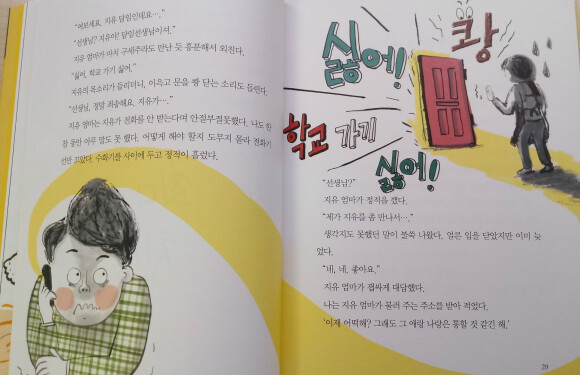 "여보세요, 지유 담임인데요…."
"선생님? 지유야! 담임선생님이셔."
지유 엄마가 마치 구세주라도 만난 듯 흥분해서 외친다.
"싫어, 학교 가기 싫어."
지유의 목소리가 들리더니, 이윽고 문을 쾅 닫는 소리도 들린다.
"선생님, 정말 죄송해요, 지유가…."
지유 엄마는 지유가 전화를 안 받는다며 안절부절못했다. 나도 한
참 동안 아무 말도 못 했다. 어떻게 해야 할지 도무지 몰라 전화기
선만 꼬았다. 수화기를 사이에 두고 정적이 흘렀다.
싫어!
쾅
학교 가기
싫어!
"선생님?"
지유 엄마가 정적을 깼다.
"제가 지유를 좀 만나서…."
생각지도 못했던 말이 불쑥 나왔다. 얼른 입을 닫았지만 이미 늦
었다.
"네, 네, 좋아요."
지유 엄마가 잽싸게 대답했다.
나는 지유 엄마가 불러 주는 주소를 받아 적었다.
'이제 어떡해? 그래도 그 애랑 나랑은 통할 것 같긴 해.'
29